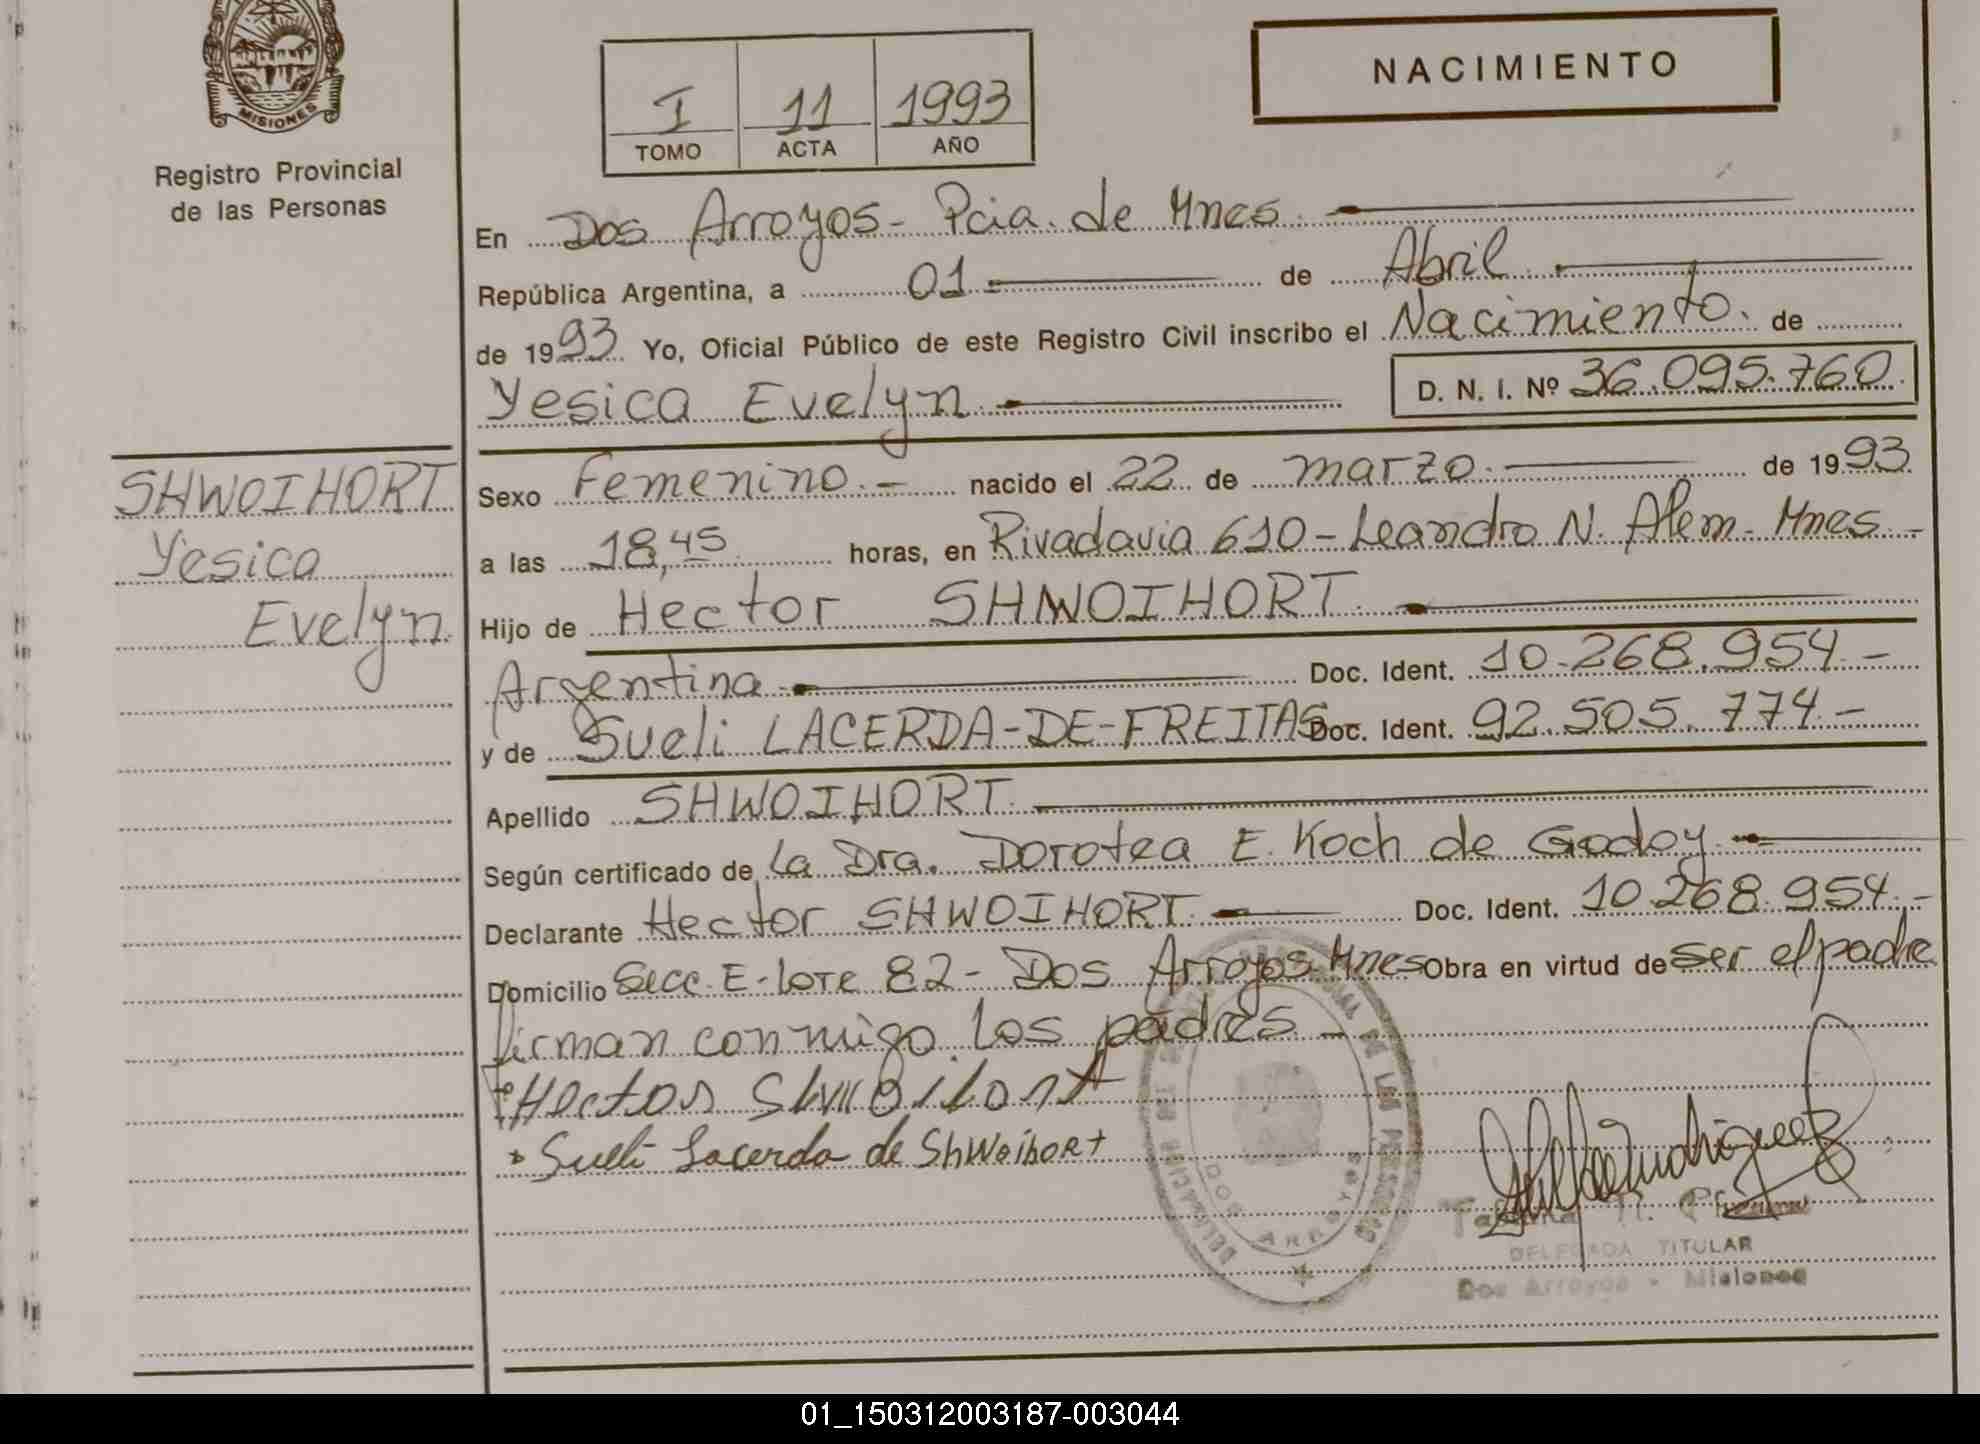 MISIONES
Registro Provincial
de las Personas
I 11 1993
TOMO ACTA AÑO
NACIMIENTO
En Dos Arroyos - Pcia. de Mnes.
República Argentina, a 01 de Abril
de 1993 Yo, Oficial Público de este Registro Civil inscribo el Nacimiento. de
Yesica Evelyn. D. N. I. Nº 36.095.760.
SHWOIHORT
Yesica
Evelyn.
Sexo Femenino. - nacido el 22 de marzo. de 1993.
a las 18,45 horas, en Rivadavia 610 - Leandro N. Alem - Mnes -
Hijo de Hector SHWOIHORT.
Argentina Doc. Ident. 10.268.954. -
y de Sueli LACERDA-DE-FREITAS Doc. Ident. 92.505.774. -
Apellido SHWOIHORT.
Según certificado de La Dra. Dorotea E. Koch de Godoy.
Declarante Hector SHWOIHORT. Doc. Ident. 10.268.954. -
Domicilio Secc. E - Lote 82 - Dos Arroyos - Mnes Obra en virtud de ser el padre
firman conmigo los padres -
Hector
Sueli Lacerda de Shwoihort
DELEGACION DEL REGISTRO PROVINCIAL DE LAS PERSONAS
DOS ARROYOS
DELEGADA TITULAR
Dos Arroyos - Misiones
01_150312003187-003044